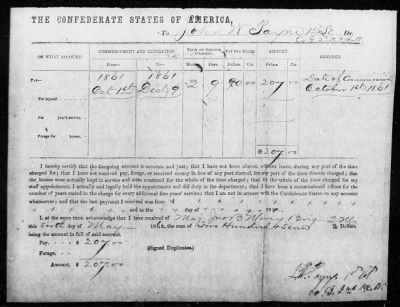 THE CONFEDERATE STATES OF AMERICA,
To John W Payne 1st Lt Dr.
ON WHAT ACCOUNT. COMMENCEMENT AND EXPIRATION. TERM OF SERVICE CHARGED. PAY PER MONTH. AMOUNT. REMARKS.
From— To— Months. Days. Dolls. Cts. Dollars. Cts.
Pay— 1861 1861 Date of Commission
Oct 1st Decb 9 2 9 90 00 207 00 October 1st 1861
For myself
For years' service,
Forage for horses,
$207.00
I hereby certify that the foregoing account is accurate and just; that I have not been absent, without leave, during any part of the time
charged for; that I have not received pay, forage, or received money in lieu of any part thereof, for any part of the time therein charged; that the
horses were actually kept in service and were mustered for the whole of the time charged; that for the whole of the time charged for my
staff appointment, I actually and legally held the appointment and did duty in the department; that I have been a commissioned officer for the
number of years stated in the charge for every additional five years' service; that I am not in arrears with the Confederate States on any account
whatsoever; and that the last payment I received was from
and to the day of
I, at the same time, acknowledge that I have received of Maj
this day of May 1862, the sum of Two Hundred & Seven Dollars
being the amount in full of said account.
Pay, - - $ 207.00 (Signed Duplicates.)
Forage, - -
Amount, - $ 207.00
Payne 1st Lt